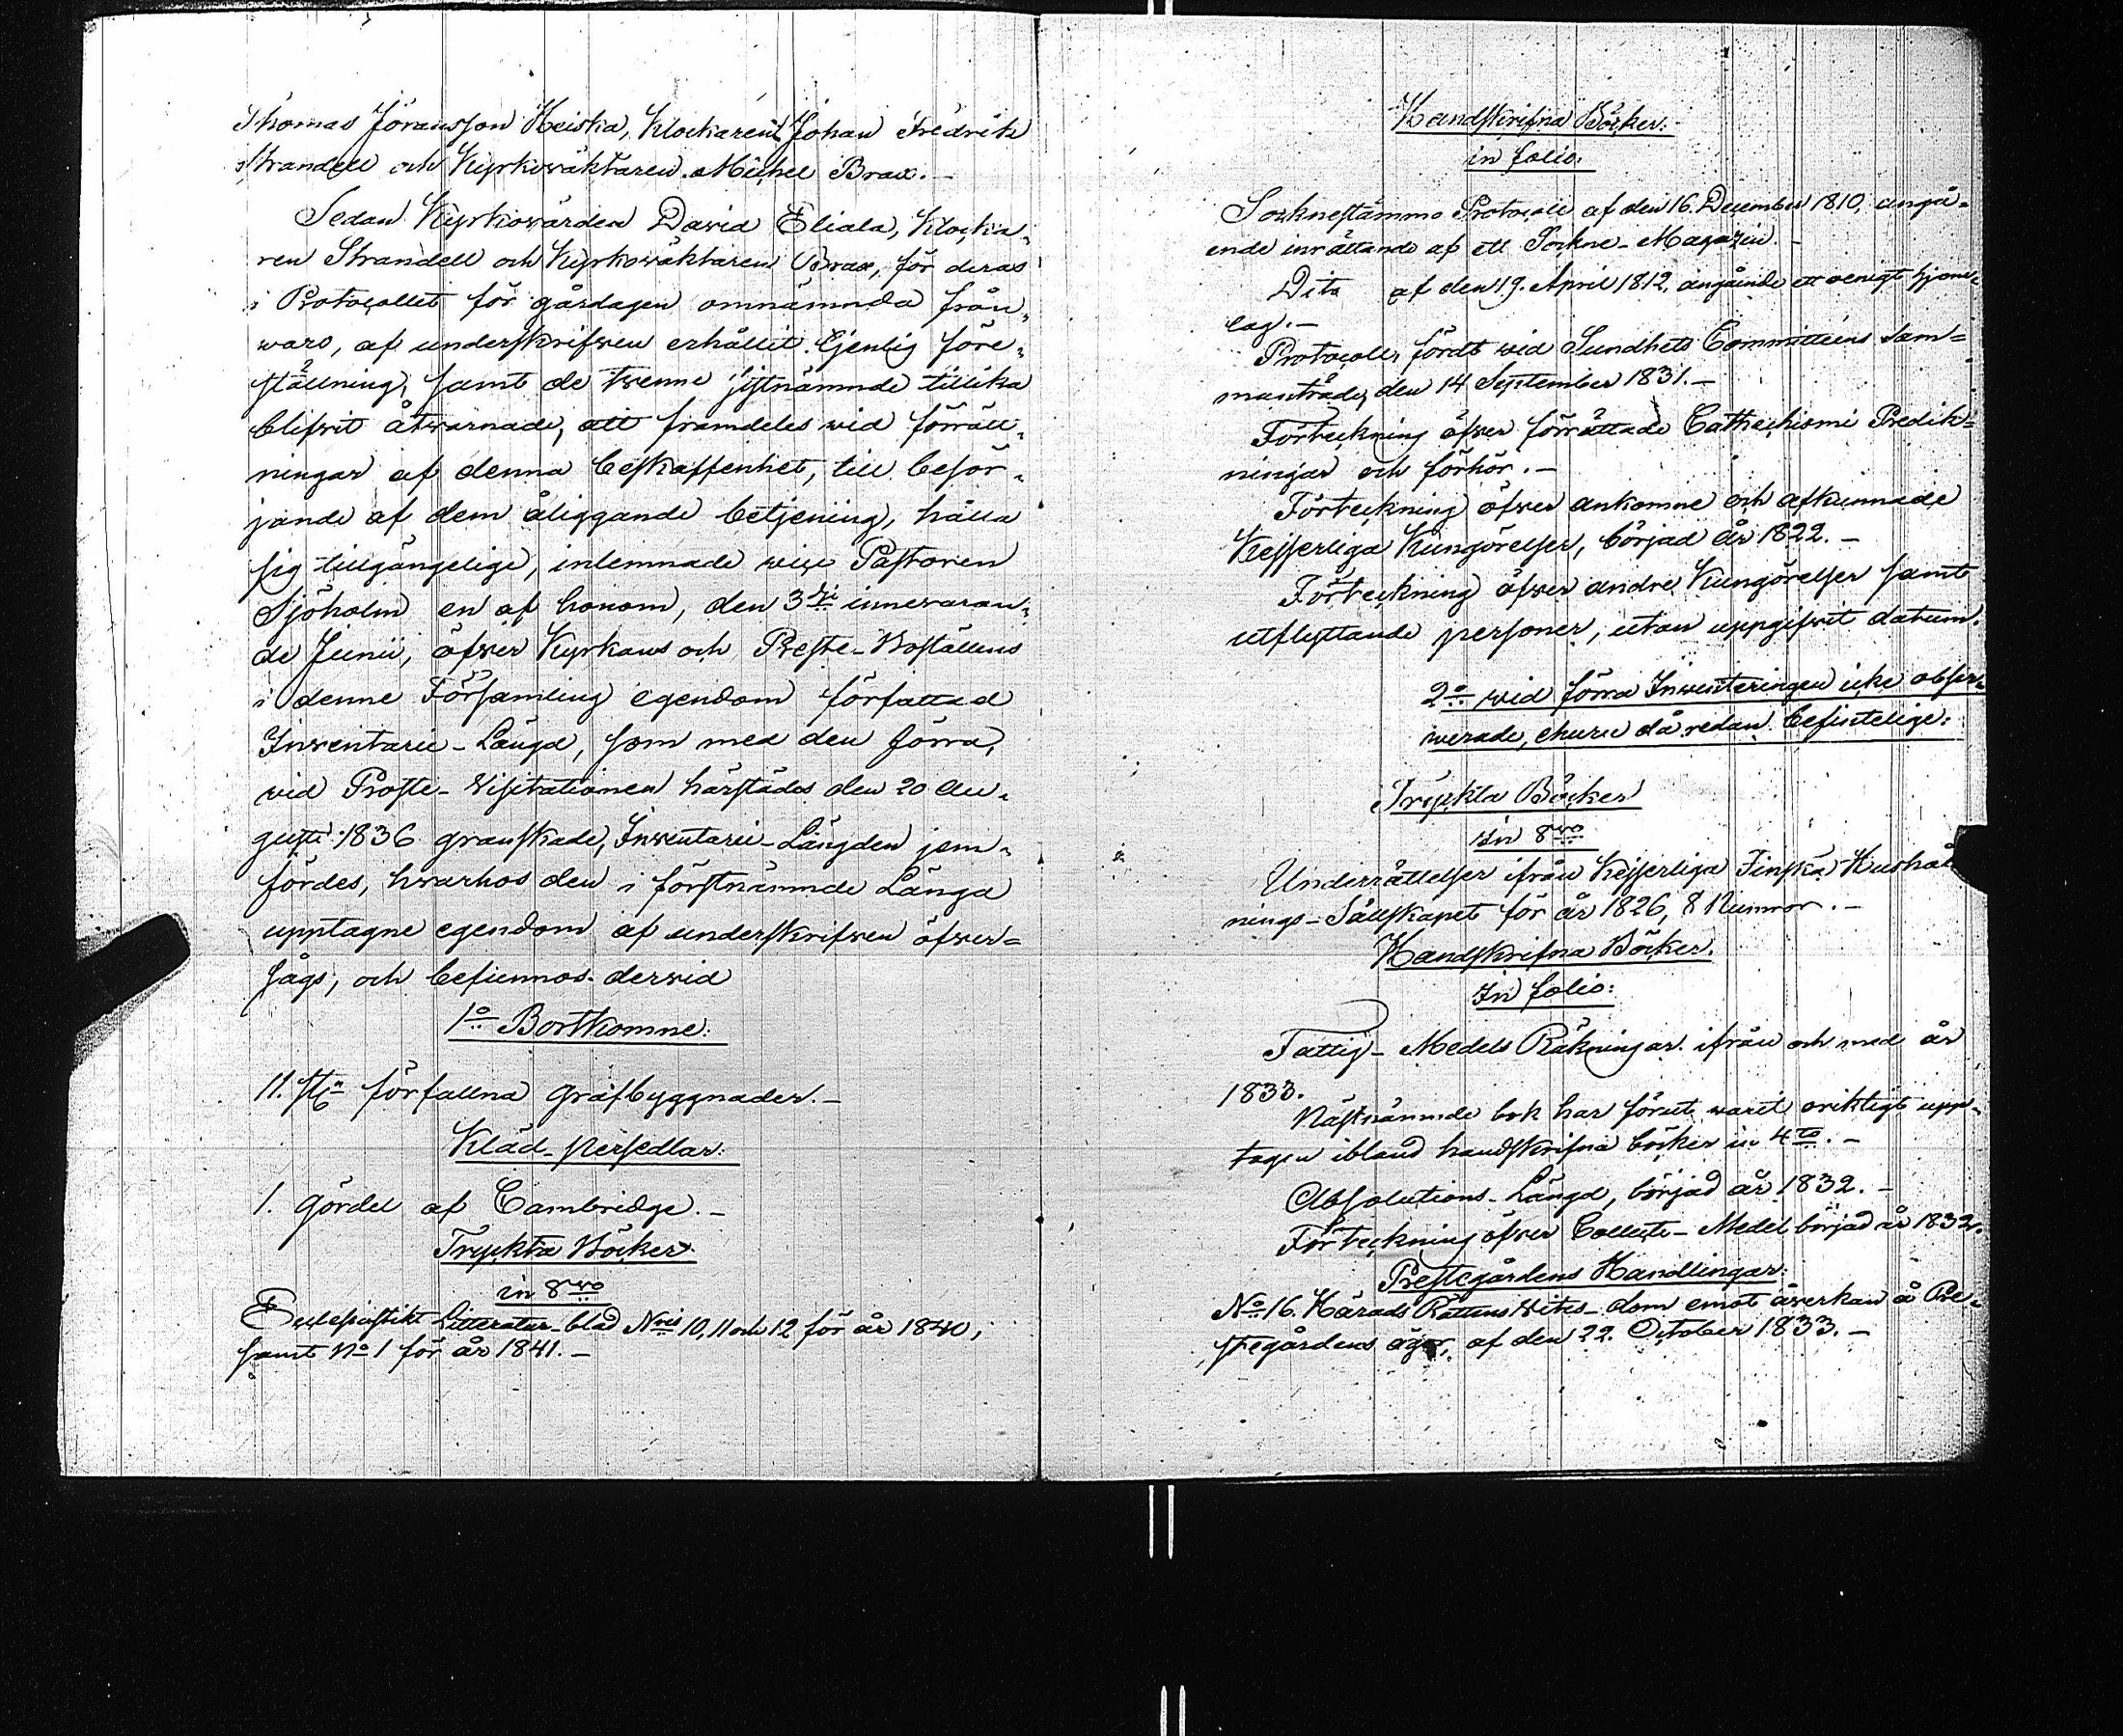 Thomas Jöransson Heiska, Klockaren Johan Fredrik
Strandell och Kyrkowäktaren Michel Brax. –
Sedan Kyrkowärden David Eliala, Klocka-
ren Strandell och Kyrkowäktaren Brax, för deras
i Protocollet för gårdagen omnämnda från-
waro, af underskrifwen erhållit tjenlig före-
ställning, samt de twenne sistnämnde tillika
blifwit åtwarnade, att framdeles wid förrätt-
ningar af denna beskaffenhet, till beför-
jande af dem åliggande betjening, hålla
sig tillgängelige, inlemnade vice Pastoren
Sjöholm en af honom, den 3die innewaran-
de Junii, öfwer Kyrkans och Preste-Boställens
i denne Församling egendom författad
Inventarii-Längd, som med den förra,
vid Proste-Visitationen härstädes den 20 Au-
gusti 1836 granskade, Inventarii-Längden jem-
fördes, hwarhos den i förstnämnde Längd
upptagne egendom af underskrifwen öfwer=
sågs, och befunnos derwid
1o Bortkomne:
11. st. förfallna grafbyggnader. –
Kläd-persedlar:
1. Gördel af Cambridge. –
Tryckta Böcker
in 8vo
Ecclesiastikt Litteratur-blad Nris 10, 11 och 12 för år 1840,
samt No 1 för år 1841. –
Handskrifna Böcker:
in folio:
Socknestämmo Protocoll af den 16. December 1810, angå-
ende inrättande af ett Sockne-Magazin. –
Dito af den 19. April 1812, angående ett wenigt hjone-
lag. –
Protocoll, fördt wid Sundhets Committéens Sam=
manträde, den 14 September 1831. –
Förteckning öfwer förrättade Cathechismi Predik=
ningar och förhör. –
Förteckning öfwer ankomne och afkunnade
Kejserliga Kungörelser, börjad år 1822. –
Förteckning öfwer andre Kungörelser samt
utflyttande personer, utan uppgifwit datum.
2o wid förra Inventeringen icke obser-
verade, ehuru då redan befintelige:
Tryckta Böcker
In 8vo
Underrättelser ifrån Kejserliga Finska Hushåll
nings-Sällskapet för år 1826, 8 Numror. –
Handskrifna Böcker.
In folio:
Fattig-Medels Räkningar ifrån och med år
1833.
Nästnämnde bok har förut warit oriktigt upp-
tagen ibland handskrifna böcker in 4to. –
Absolutions-Längd, börjad år 1832. –
Förteckning öfwer Collecte-Medel börjad år 1832.
Prestegårdens Handlingar:
No 16. Härads Rättens Vites-dom emot åwerkan å Pre-
stegårdens ägor, af den 22. October 1833. –